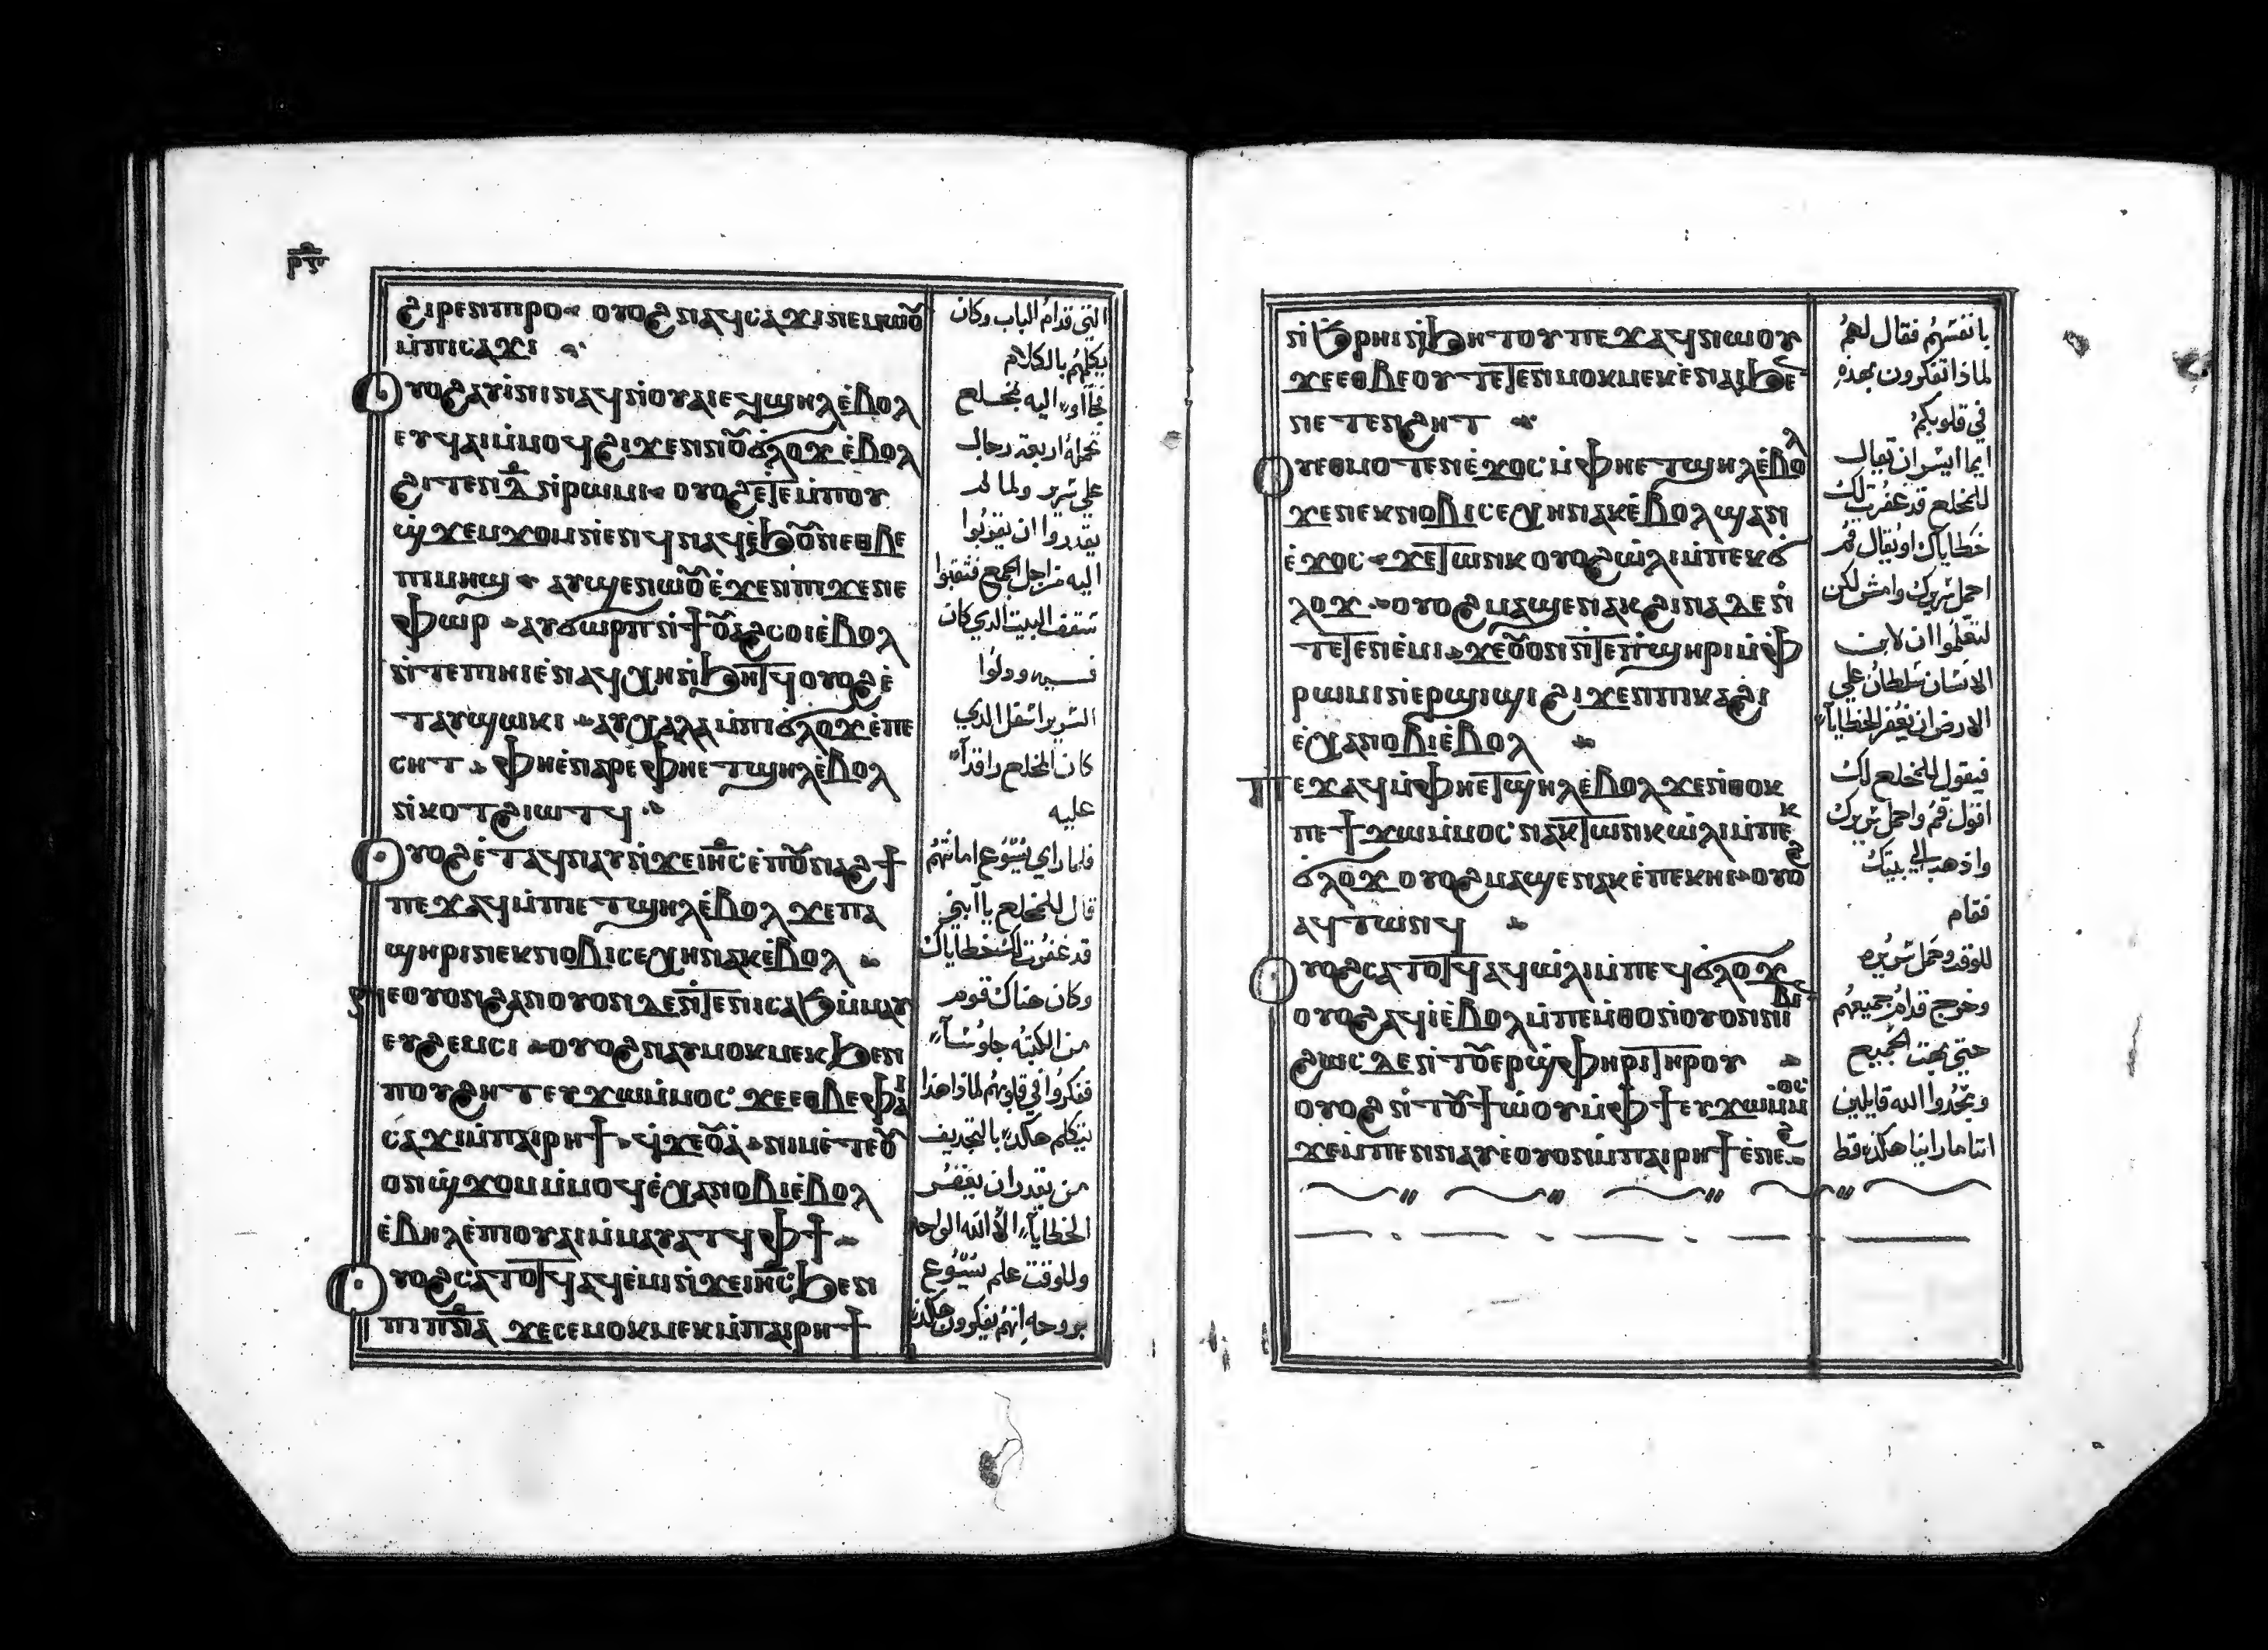 ϩⲓⲣⲉⲛⲡⲓⲣⲟ ⲟⲩⲟϩ ⲛⲁϥⲥⲁϫⲓ ⲛⲉⲙⲱⲟ̅
ⲙ̀ⲡⲓⲥⲁϫⲓ
ⲟⲩⲟϩ ⲁⲩⲓ̀ⲛⲓ ⲛⲁϥ ⲛ̀ⲟⲩⲁⲓ ⲉϥϣⲏⲗ ⲉ̀ⲃⲟⲗ
ⲉⲩϥⲁⲓ ⲙ̀ⲙⲟϥ ϩⲓϫⲉⲛ ⲟⲩ̅ϭⲗⲟϫ ⲉ̀ⲃⲟⲗ
ϩⲓⲧⲉⲛ ⲇ̅ ⲛ̀ⲣⲱⲙⲓ ⲟⲩⲟϩ ⲉ̀ⲧⲉ ⲙ̀ⲡⲟⲩ
ϣ̀ϫⲉⲙϫⲟⲙ ⲛ̀ⲉⲛϥ ⲛⲁϥ ⲉ̀ϧⲟ̅ⲛ ⲉⲑⲃⲉ
ⲡⲓⲙⲏϣ ⲁⲩϣⲉⲛⲱⲟ̅ ⲉ̀ϫⲉⲛ ⲡⲓϫⲉⲛⲉ
ⲫⲱⲣ ⲁⲩϭⲱⲣⲡ ⲛ̀ϯⲟ̅ⲁϩⲥⲟⲓ ⲉ̀ⲃⲟⲗ
ⲛ̀ⲧⲉ ⲡⲓⲏⲓ ⲉ̀ⲛⲁϥⲭⲏ ⲛ̀ϧⲏⲧϥ ⲟⲩⲟϩ ⲉ̀
ⲧⲁⲩϣⲱⲕⲓ ⲁⲩⲭⲁⲗⲁ ⲙ̀ⲡⲓϭⲗⲟϫ ⲉ̀ⲡⲉ
ⲥⲏⲧ ⲫⲏ ⲉ̀ⲛⲁⲣⲉ ⲫⲏ ⲉⲧϣⲏⲗ ⲉ̀ⲃⲟⲗ
ⲛ̀ⲕⲟⲧ ϩⲓⲱⲧϥ
ⲟⲩⲟϩ ⲉ̀ⲧⲁϥⲛⲁⲩ ⲛ̀ϫⲉ ⲓⲏ̅ⲥ ⲉ̀ⲡⲟ̅ⲛⲁϩϯ
ⲡⲉϫⲁϥ ⲙ̀ⲡⲓⲉⲧϣⲏⲗ ⲉ̀ⲃⲟⲗ ϫⲉ ⲡⲁ
ϣⲏⲣⲓ ⲛⲉⲕⲛⲟⲃⲓ ⲥⲉⲭⲏ ⲛⲁⲕ ⲉ̀ⲃⲟⲗ
ⲛⲉ ⲟⲩⲟⲛ ϩⲁⲛⲟⲩⲟⲛ ⲇⲉ ⲛ̀ⲧⲉ ⲛⲓⲥⲁϧ ⲙ̀ⲙⲁⲩ
ⲉⲩϩⲉⲙⲥⲓ ⲟⲩⲟϩ ⲛⲁⲩⲙⲟⲕⲙⲉⲕ ϧⲉⲛ
ⲡⲟⲩϩⲏⲧ ⲉⲩϫⲱ ⲙ̀ⲙⲟⲥ ϫⲉ ⲉⲑⲃⲉ ⲫⲁⲓ
ⲥⲁϫⲓ ⲙ̀ⲡⲁⲓⲣⲏϯ ϥ̀ϫⲉⲟ̅ⲁ̀ ⲛⲓⲙ ⲉ̀ⲧⲉⲟ̅
ⲟⲛϣ̀ϫⲟⲙ ⲙ̀ⲙⲟϥ ⲉ̀ⲭⲁ ⲛⲟⲃⲓ ⲉ̀ⲃⲟⲗ
ⲉ̀ⲃⲏⲗ ⲉ̀ⲡⲓⲟⲩⲁⲓ ⲙ̀ⲙⲁⲩⲁⲧϥ ⲫϯ
ⲟⲩⲟϩ ⲥⲁⲧⲟⲧϥ ⲁϥⲉ̀ⲙⲓ ⲛ̀ϫⲉ ⲓⲏ̅ⲥ ϧⲉⲛ
ⲡⲓⲡ̅ⲛ̅ⲁ ϫⲉ ⲥⲉⲙⲟⲕⲙⲉⲕ ⲙ̀ⲡⲁⲓⲣⲏϯ
التي قدام الباب وكان
يكلمهم بالكلام
فجاؤا اليه بمخلع
تحمله اربعة رجال
على سرير ولما لم
يقدروا ان يقربوا
اليه من اجل الجمع فنقبوا
سقف البيت الدي كان
فيه ودلوا
السرير اسفل الدي
كان المخلع راقداً
عليه
فلما راي يسوع امانتهم
قال للمخلع يا ابني
قد غفرت لك خطاياك
وكان هناك قوم
من الكتبه جلوساً
ففكروا في قلوبهم لماذا هذا
يتكلم هكذا بالتجديف
من يقدر ان يغفر
الخطايا الا الله الواحد
وللوقت علم يسوع
بروحه انهم يفكرون هكذا
ⲛ̀ϧ̀ⲣⲏⲓ ⲛ̀ϧⲏⲧⲟⲩ ⲡⲉϫⲁϥ ⲛⲱⲟⲩ
ϫⲉ ⲉⲑⲃⲉ ⲟⲩ ⲧⲉⲧⲉⲛⲙⲟⲕⲙⲉⲕ ⲉ̀ⲛⲁⲓ ϧⲉ
ⲛⲉⲧⲉⲛϩⲏⲧ
ⲟⲩ ⲉⲑⲙⲟⲧⲉⲛ ⲉ̀ϫⲟⲥ ⲙ̀ⲫⲏ ⲉⲧϣⲏⲗ ⲉ̀ⲃⲟⲗ
ϫⲉ ⲛⲉⲕⲛⲟⲃⲓ ⲥⲉⲭⲏ ⲛⲁⲕ ⲉ̀ⲃⲟⲗ ϣⲁⲛ
ⲉ̀ϫⲟⲥ ϫⲉ ⲧⲱⲛⲕ ⲟⲩⲟϩ ⲱ̀ⲗⲓ ⲙ̀ⲡⲉⲕϭ
ⲗⲟϫ ⲟⲩⲟϩ ⲙⲁϣⲉⲛⲁⲕ ϩⲓⲛⲁ ⲇⲉ ⲛ̀
ⲧⲉⲧⲉⲛⲉ̀ⲙⲓ ϫⲉ ⲟ̅ⲟⲛⲛ̀ⲧⲉ ⲡ̀ϣⲏⲣⲓ ⲙ̀ⲫ̀
ⲣⲱⲙⲓ ⲛ̀ⲉⲣϣⲓϣⲓ ϩⲓϫⲉⲛ ⲡⲓⲕⲁϩⲓ
ⲉ̀ⲭⲁ ⲛⲟⲃⲓ ⲉ̀ⲃⲟⲗ
ⲡⲉϫⲁϥ ⲙ̀ⲫⲏ ⲉⲧϣⲏⲗ ⲉ̀ⲃⲟⲗ ϫⲉ ⲛ̀ⲑⲟⲕ
ⲡⲉ ϯϫⲱ ⲙ̀ⲙⲟⲥ ⲛⲁⲕ ⲧⲱⲛⲕ ⲱ̀ⲗⲓ ⲙ̀ⲡⲉⲕ
ϭⲗⲟϫ ⲟⲩⲟϩ ⲙⲁϣⲉⲛⲁⲕ ⲉ̀ⲡⲉⲕⲏⲓ ⲟⲩⲟϩ
ⲁϥⲧⲱⲛϥ
ⲟⲩⲟϩ ⲥⲁⲧⲟⲧϥ ⲁϥⲱ̀ⲗⲓ ⲙ̀ⲡⲉϥϭⲗⲟϫ
ⲟⲩⲟϩ ⲁϥⲓ̀ ⲉ̀ⲃⲟⲗ ⲙ̀ⲡⲉⲙ̀ⲑⲟ ⲛ̀ⲟⲩⲟⲛ ⲛⲓⲃⲉⲛ
ϩⲱⲥ ⲇⲉ ⲛ̀ⲧⲟ̅ⲉⲣϣ̀ⲫⲏⲣⲓ ⲧⲏⲣⲟⲩ
ⲟⲩⲟϩ ⲛ̀ⲧⲟ̅ϯⲱ̀ⲟⲩ ⲙ̀ⲫϯ ⲉⲩϫⲱ ⲙ̀ⲙⲟⲥ
ϫⲉ ⲙ̀ⲡⲉⲛⲛⲁⲩ ⲉ̀ⲟⲩⲟⲛ ⲙ̀ⲡⲁⲓⲣⲏϯ ⲉ̀ⲛⲉϩ
بانفسهم فقال لهم
لماذا تفكرون بهذه
في قلوبكم
ايما ايسر ان تقال
للمخلع قد غفرت لك
خطاياك او يقال قم
احمل سريرك وامش لكن
لتعلموا ان لابن
الانسان سلطان علي
الارض ان يغفر الخطايا
فيقول للمخلع لك
اقول قم واحمل سريرك
واذهب الي بيتك
فقام
للوقت وحمل سريره
وخرج قدام جميعهم
حتي بهت الجميع
ومجدوا الله قايلين
اننا ما راينا هكذا قط